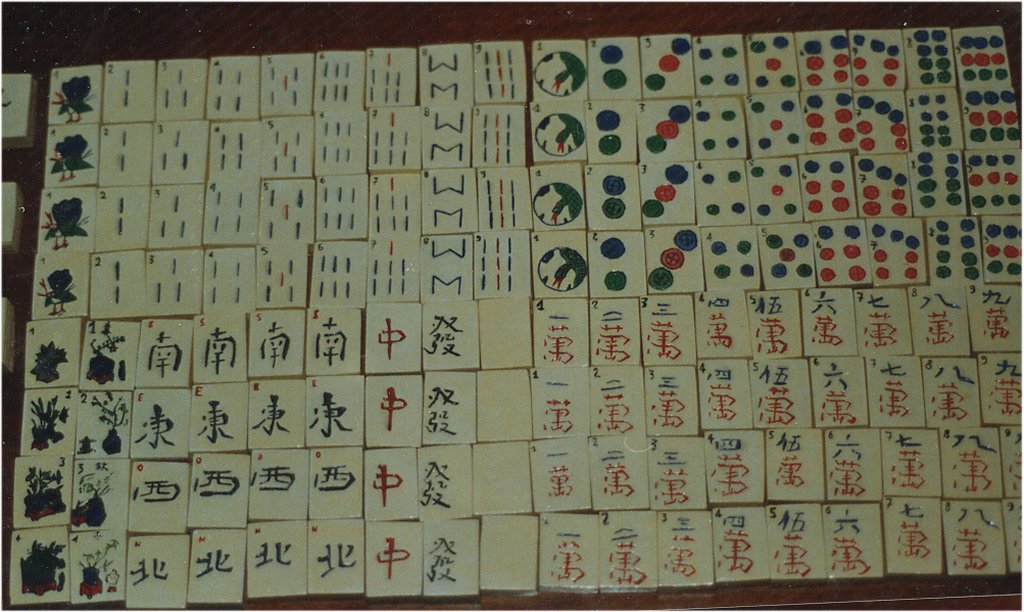 1 2 3 4 5 6 7 8 9 1 2 3 4 5 6 7 8 9
1 2 3 4 5 6 7 8 9 1 2 3 4 5 6 7 8 9
1 2 3 4 5 6 7 8 9 1 2 3 4 5 6 7 8 9
1 2 3 4 5 6 7 8 9 1 2 3 4 5 6 7 8 9
1 1 S 南 S 南 S 南 S 南 中 發 1 一萬 2 二萬 3 三萬 4 四萬 5 伍萬 6 六萬 7 七萬 8 八萬 9 九萬
2 2 E 東 E 東 E 東 E 東 中 發 1 一萬 2 二萬 3 三萬 4 四萬 5 伍萬 6 六萬 7 七萬 8 八萬 9 九萬
3 3 O 西 O 西 O 西 O 西 中 發 1 一萬 2 二萬 3 三萬 4 四萬 5 伍萬 6 六萬 7 七萬 8 八萬 9
4 4 N 北 N 北 N 北 N 北 中 發 1 一萬 2 二萬 3 三萬 4 四萬 5 伍萬 6 六萬 7 七萬 8 八萬 9